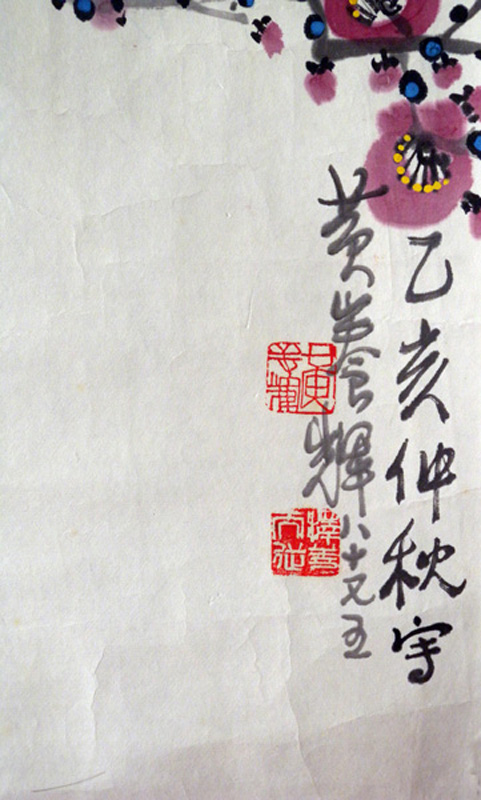 乙亥仲秋写
黄養輝八十又五